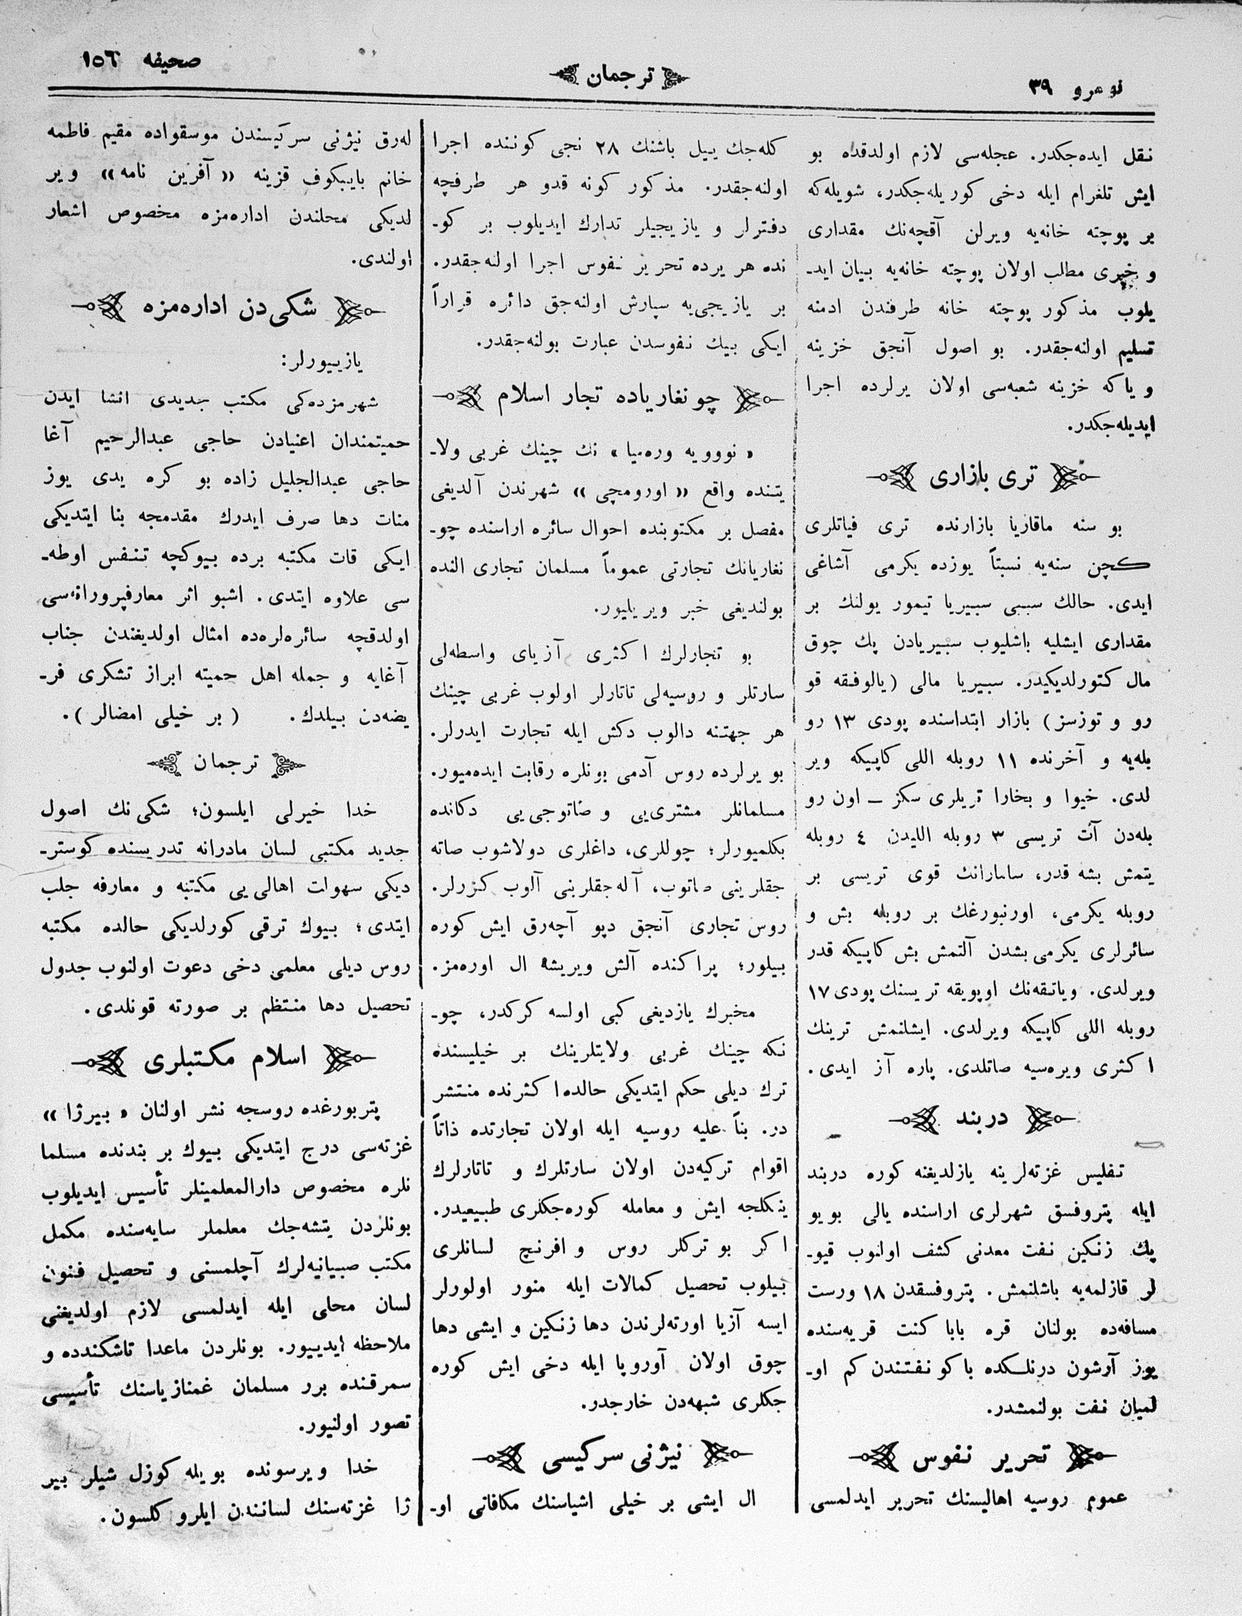 نومرو ٣٩
ترجمان
صحیفه ١٥٦
نقل ایده‌جكدر. عجله‌سی لازم اولدقده بو
ایش تلغرام ایله دخی كوریله‌جكدر، شویله‌كه
بر پوچته خانه‌یه ویرلن آقچه‌نك مقداری
و خبری مطلب اولان پوچته خانه‌یه بیان اید۔
یلوب مذكور پوچته خانه طرفندن ادمنه
تسلیم اولنه‌جقدر. بو اصول آنجق خزینه
و یاكه خزینه شعبه‌سی اولان یرلرده اجرا
ایدیله‌جكدر.
تری بازاری
بو سنه ماقاریا بازارنده تری فیاتلری
كچن سنه‌یه نسبتاً یوزده یكرمی آشاغی
ایدی. حالك سببی سیبریا تیمور یولنك بر
مقداری ایشلیه باشلیوب سیبریادن پك چوق
مال كتورلدیكیدر. سیبریا مالی (یالوفقه قو
رو و توزسز) بازار ابتداسنده پودی ١٣ رو
بله‌یه و آخرنده ١١ روبله اللی كاپیكه ویر
لدی. خیوا و بخارا تریلری سكز ــ اون رو
بله‌دن آت تریسی ٣ روبله اللیدن ٤ روبله
یتمش بشه قدر، سامارانك قوی تریسی بر
روبله یكرمی، اورنبورغك بر روبله بش و
سائرلری یكرمی بشدن آلتمش بش كاپیكه قدر
ویرلدی. ویاتقه‌نك اوپویقه تریسنك پودی ١٧
روبله اللی كاپیكه ویرلدی. ایشلنمش ترینك
اكثری ویره‌سیه صاتلدی. پاره آز ایدی.
دربند
تفلیس غزته‌لرینه یازلدیغنه كوره دربند
ایله پتروفسق شهرلری اراسنده یالی بویو
پك زنكین نفت معدنی كشف اولنوب قیو۔
لر قازلمه‌یه باشلنمش. پتروفسقدن ١٨ ورست
مسافه‌ده بولنان قره باباكنت قریه‌سنده
یوز آرشون درنلكده باكو نفتندن كم او۔
لمیان نفت بولنمشدر.
تحریر نفوس
عموم روسیه اهالیسنك تحریر ایدلمسی
كله‌جك ییل باشنك ٢٨ نجی كوننده اجرا
اولنه‌جقدر. مذكور كونه قدو هر طرفچه
دفترلر و یازیجیلر تدارك ایدیلوب بر كو۔
نده هر یرده تحریر نفوس اجرا اولنه‌جقدر.
بر یازیجی‌یه سپارش اولنه‌جق دائره قراراً
ایكی بیك نفوسدن عبارت بولنه‌جقدر.
چونغاریاده تجار اسلام
«نوویه وره‌میا» نك چینك غربی ولا۔
یتنده واقع «اورومچی» شهرندن آلدیغی
مفصل بر مكتوبنده احوال سائره اراسنده چو۔
نغاریانك تجارتی عموماً مسلمان تجاری النده
بولندیغی خبر ویریلیور.
بو تجارلرك اكثری آزیای واسطه‌لی
سارتلر و روسیه‌لی تاتارلر اولوب غربی چینك
هر جهتنه دالوب دكش ایله تجارت ایدرلر.
بو یرلرده روس آدمی بونلره رقابت ایده‌میور.
مسلمانلر مشتری‌یی و صاتوجی‌یی دكانده
بكلمیورلر؛ چوللری، داغلری دولاشوب صاته
جقلرینی صاتوب، آله‌جقلرینی آلوب كزرلر.
روس تجاری آنجق دپو آچه‌رق ایش كوره
بیلور؛ پراكنده آلش ویریشه ال اوره‌مز.
مخبرك یازدیغی كبی اولسه كركدر، چو۔
نكه چینك غربی ولایتلرینك بر خیلیسنده
ترك دیلی حكم ایتدیكی حالده اكثرنده منتشر
در. بناً علیه روسیه ایله اولان تجارتده ذاتاً
اقوام تركیه‌دن اولان سارتلرك و تاتارلرك
ینكلجه ایش و معامله كوره‌جكلری طبیعیدر.
اكر بو تركلر روس و افرنج لسانلری
بیلوب تحصیل كمالات ایله منور اولورلر
ایسه آزیا اورته‌لرندن دها زنكین و ایشی دها
چوق اولان آوروپا ایله دخی ایش كوره
جكلری شبهه‌دن خارجدر.
نیژنی سركیسی
ال ایشی بر خیلی اشیاسنك مكافاتی او۔
له‌رق نیژنی سركیسندن موسقواده مقیم فاطمه
خانم بایبكوف قزینه «آفرین نامه» ویر
لدیكی محلندن اداره‌مزه مخصوص اشعار
اولندی.
شكی‌دن اداره‌مزه
یازییورلر:
شهرمزده‌كی مكتب جدیدی انشا ایدن
حمیتمندان اغنیادن حاجی عبدالرحیم آغا
حاجی عبدالجلیل زاده بو كره یدی یوز
منات دها صرف ایدرك مقدمجه بنا ایتدیكی
ایكی قات مكتبه برده بیوكچه تنفس اوطه۔
سی علاوه ایتدی. اشبو اثر معارفپروراﻧﻪسی
اولدقچه سائره‌لره‌ده امثال اولدیغندن جناب
آغایه و جمله اهل حمیته ابراز تشكری فر۔
یضه‌دن بیلدك. (بر خیلی امضالر).
ترجمان
خدا خیرلی ایلسون؛ شكی‌نك اصول
جدید مكتبی لسان مادرانه تدریسنده كوستر۔
دیكی سهولت اهالی‌یی مكتبه و معارفه جلب
ایتدی؛ بیوك ترقی كورلدیكی حالده مكتبه
روس دیلی معلمی دخی دعوت اولنوب جدول
تحصیل دها منتظم بر صورته قونلدی.
اسلام مكتبلری
پتربورغده روسجه نشر اولنان «بیرژا»
غزته‌سی درج ایتدیكی بیوك بر بندنده مسلما
نلره مخصوص دارالمعلمینلر تأسیس ایدیلوب
بونلردن یتشه‌جك معلملر سایه‌سنده مكمل
مكتب صبیانیه‌لرك آچلمسنی و تحصیل فنون
لسان محلی ایله ایدلمسی لازم اولدیغنی
ملاحظه ایدییور. بونلردن ماعدا تاشكندده و
سمرقنده برر مسلمان غمنازیاسنك تأسیسی
تصور اولنیور.
خدا ویرسونده بویله كوزل شیلر بیر
ژا غزته‌سنك لسانندن ایلرو كلسون.